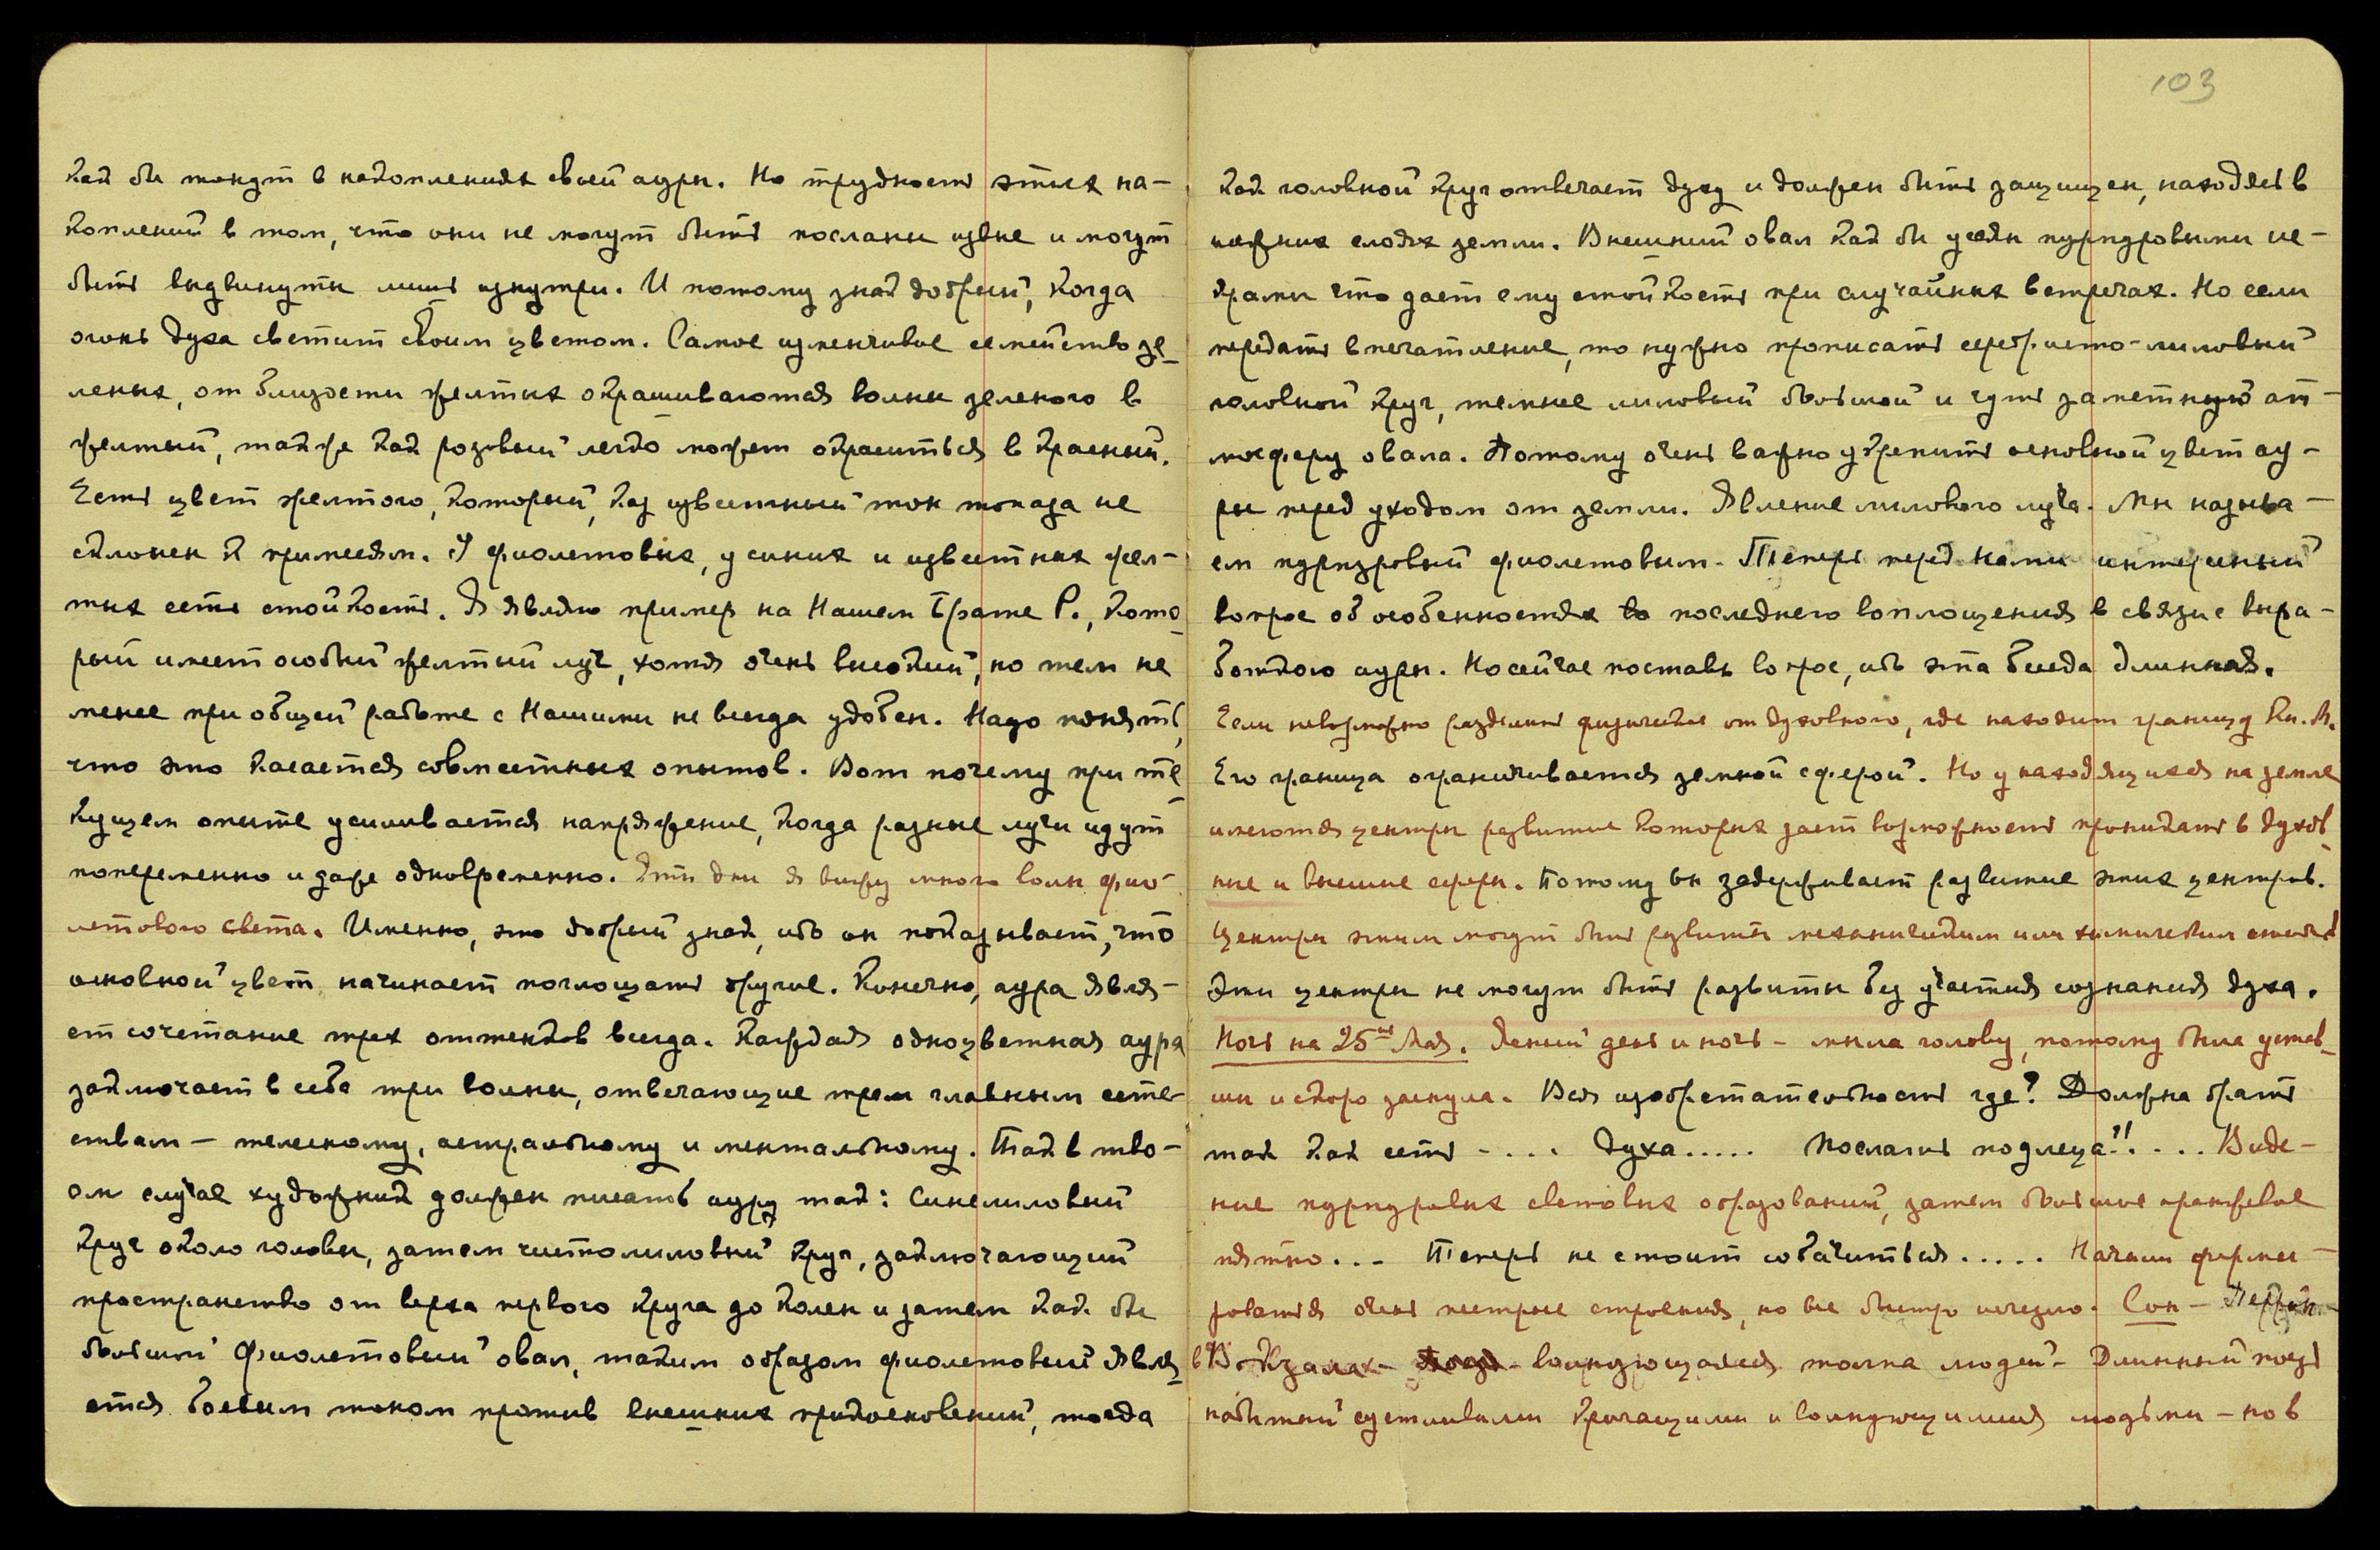 как бы тонут в накоплениях своей ауры. Но трудность этих на-
коплений в том, что они не могут быть посланы извне и могут
быть выдвинуты лишь изнутри. И потому знак добрый, когда
огонь духа светит своим цветом. Самое изменчивое семейство зе-
леных, от близости желтых окрашиваются волны зеленого в
желтый, также как розовый легко может окраситься в красный.
Есть цвет желтого, который, как известный тон топаза не
склонен к примесям. У фиолетовых, у синих и известных жел-
тых есть стойкость. Я являю пример на Нашем Брате Р., кото-
рый имеет особый желтый луч, хотя очень высокий, но тем не
менее при общей работе с Нашими не всегда удобен. Надо понять,
что это касается совместных опытов. Вот почему при те-
кущем опыте усиливается напряжение, когда разные лучи идут
попеременно и даже одновременно. Эти дни я вижу много волн фио-
летового света. Именно, это добрый знак, ибо он показывает, что
основной цвет начинает поглощать другие. Конечно, аура явля-
ет сочетание трех оттенков всегда. Каждая одноцветная аура
заключает в себе три волны, отвечающие трем главным есте-
ствам – телесному, астральному и ментальному. Так в тво-
ем случае художник должен писать ауру так: Синелиловый
круг около головы, затем чистолиловый круг, заключающий
пространство от верха первого круга до колен и затем как бы
большой фиолетовый овал, таким образом фиолетовый явля-
ется боевым тоном против внешних прикосновений, тогда
103
как головной круг отвечает духу и должен быть защищен, находясь в
нижних слоях земли. Внешний овал как бы усеян пурпуровыми ис-
крами что дает ему стойкость при случайных встречах. Но если
передать впечатление, то нужно прописать серебристо-лиловый
головной круг, темнее лиловый большой и чуть заметную ат-
мосферу овала. Потому очень важно укрепить основной цвет ау-
ры перед уходом от земли. Явление лилового луча. Мы называ-
ем пурпуровый фиолетовым. Теперь перед нами интересный
вопрос об особенностях последнего воплощения в связи с выра-
боткою ауры. Но сейчас поставь вопрос, ибо эта беседа длинная.
Если невозможно разделить физическое от духовного, где находит границу Кн. М.
Его граница ограничивается земной сферой. Но у находящихся на земле
имеются центры развитие которых дает возможность проникать в духов-
ные и высшие сферы. Потому он задерживает развитие этих центров.
Центры этим могут быть развиты механическим или химическим способом
Эти центры не могут быть развиты без участия сознания духа.
Ночь на 25ое Мая. Ясный день и ночь – мыла голову, потому была устав-
ши и скоро заснула. Вся изобретательность где? Должна брать
так как есть - . . . Духа..... Послать подлеца!!.... Виде-
ние пурпуровых световых образований, затем большое оранжевое
пятно... Теперь не стоит собачиться..... Начали форми-
роваться очень пестрые строения, но все быстро исчезло. Сон –
в Вокзалах – волнующаяся толпа людей – Длинный поезд
набитый суетливыми кричащими и волнующимися людьми – но в